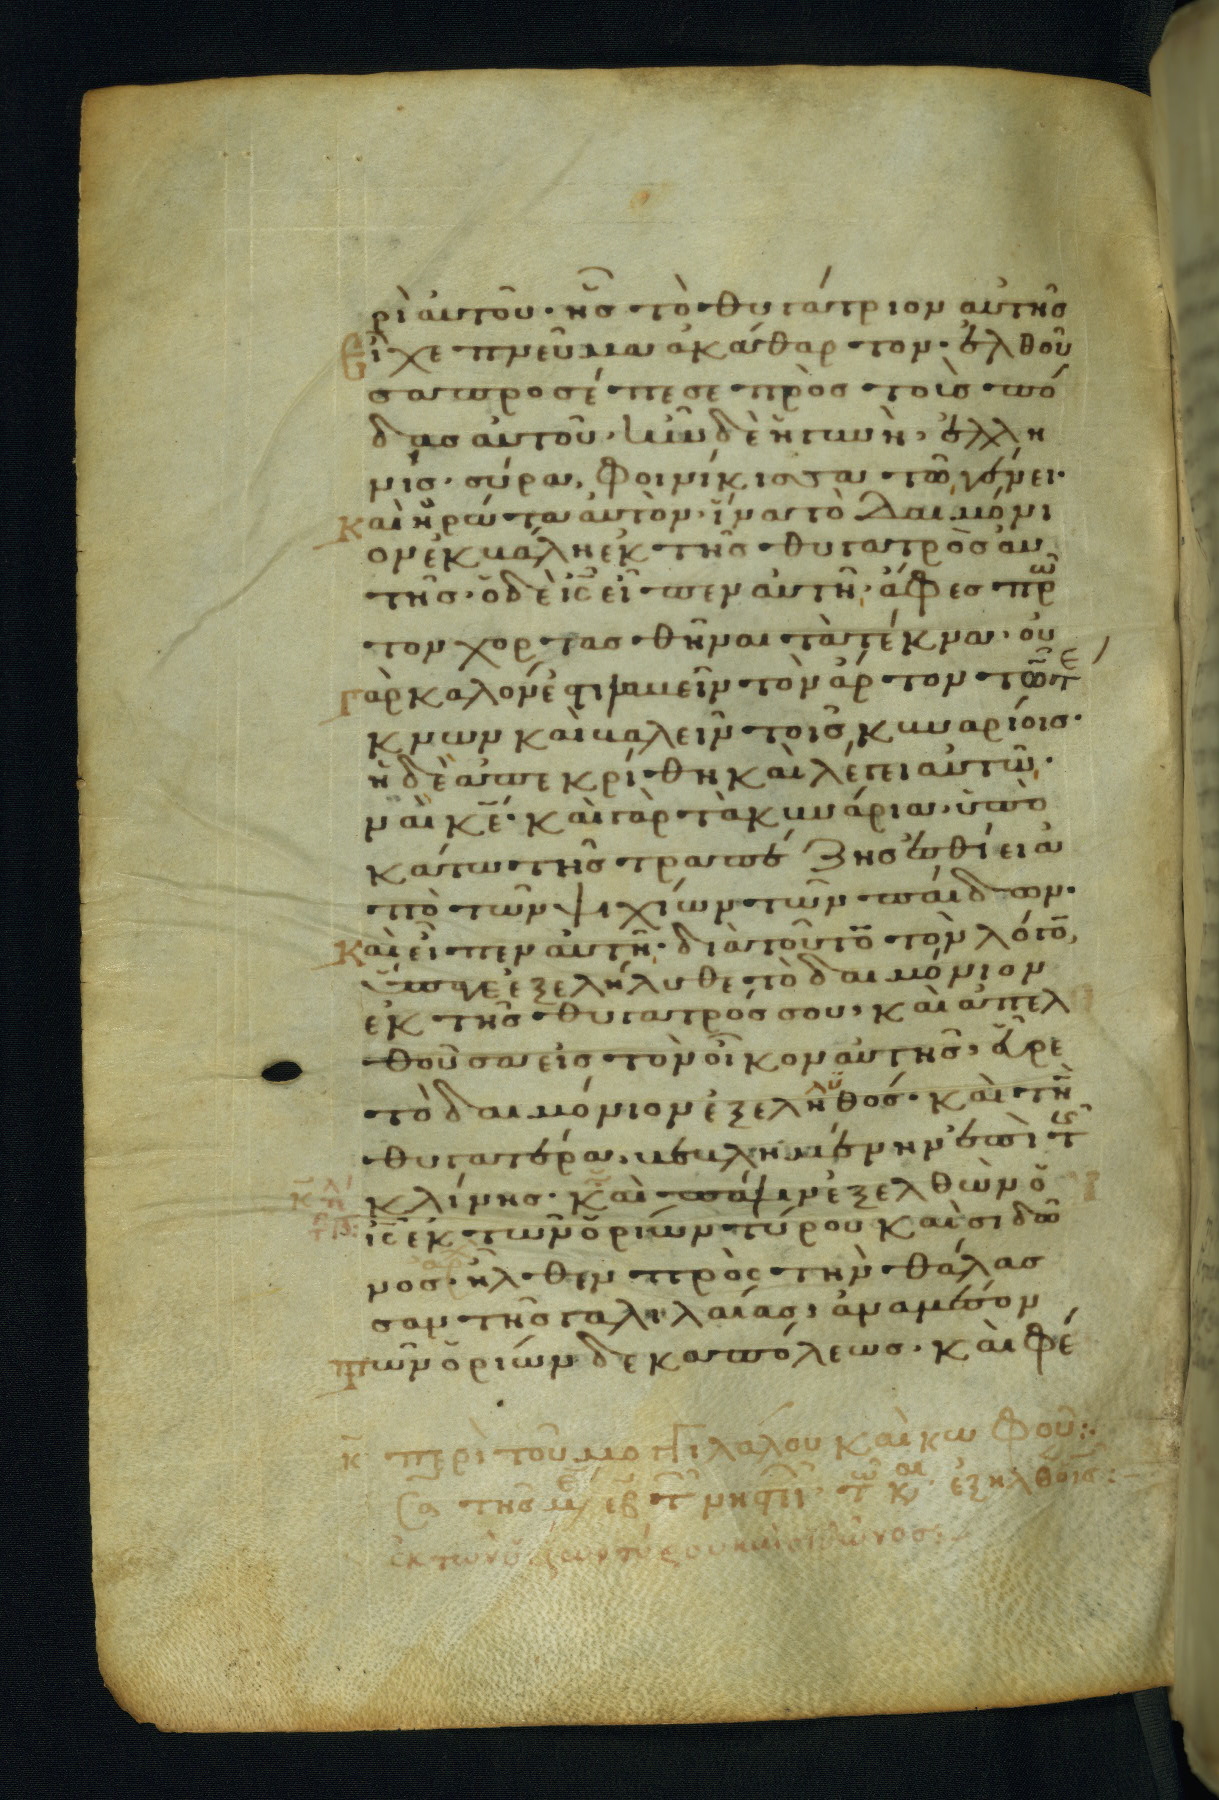 ρὶ αὐτοῦ· ἧς τὸ θυγάτριον αὐτῆς
εἶχε πνεῦμα ἀκάθαρτον· ἐλθοῦ
σα προσέπεσε πρὸς τοὺς πό
δας αὐτοῦ· ἦν δὲ ἡ γυνὴ, ἑλλη
νίς· σύρα, φοινίκισσα τῶ γένει·
καὶ ἠρώτα αὐτὸν· ἵνα τὸ δαιμόνι
ον ἐκβάλη ἐκ τῆς θυγατρὸς αὐ
τῆς· ὁ δὲ ις εἶπεν αὐτῆ· ἄφες πρῶ
τον χορτασθῆναι τὰ τέκνα· οὐ
γὰρ καλόν ἐστι λαβεῖν τὸν ἄρτον τῶν τέ
κνων καὶ βαλεῖν τοῖς κυναρίοις·
ἡ δὲ ἀπεκρίθη καὶ λέγει αὐτῶ·
ναὶ κε· καὶ γὰρ τὰ κυνάρια, ὑπο
κάτω τῆς τραπέζης ἐσθίει ἀ
πὸ τῶν ψιχίων τῶν παίδων·
καὶ εἶπεν αὐτῆ· διὰ τοῦτον τὸν λόγον,
ὕπαγε ἐξελήλυθε τὸ δαιμόνιον
ἐκ τῆς θυγατρός σου, καὶ ἀπελ
θοῦσα εἰς τὸν οἶκον αὐτῆς, εὗρε
τὸ δαιμόνιον ἐξεληλυθός· καὶ τὴν
θυγατέρα, βεβλημένην ἐπὶ τῆς
κλίνης· καὶ πάλιν ἐξελθὼν ὁ
ις ἐκ τῶν ὁρίων τύρου καὶ σιδῶ
νος· ἦλθεν πρὸς τὴν θάλασ
σαν τῆς γαλιλαίας, ἀνα μέσον
τῶν ὁρίων δεκαπόλεως· καὶ φέ
κ περὶ τοῦ μογιλάλου καὶ κωφοῦ:
τῆς τῶ κ ἐξηλθ
ἐκ τῶν ὁρίων τύρου καὶ σιδῶνος: